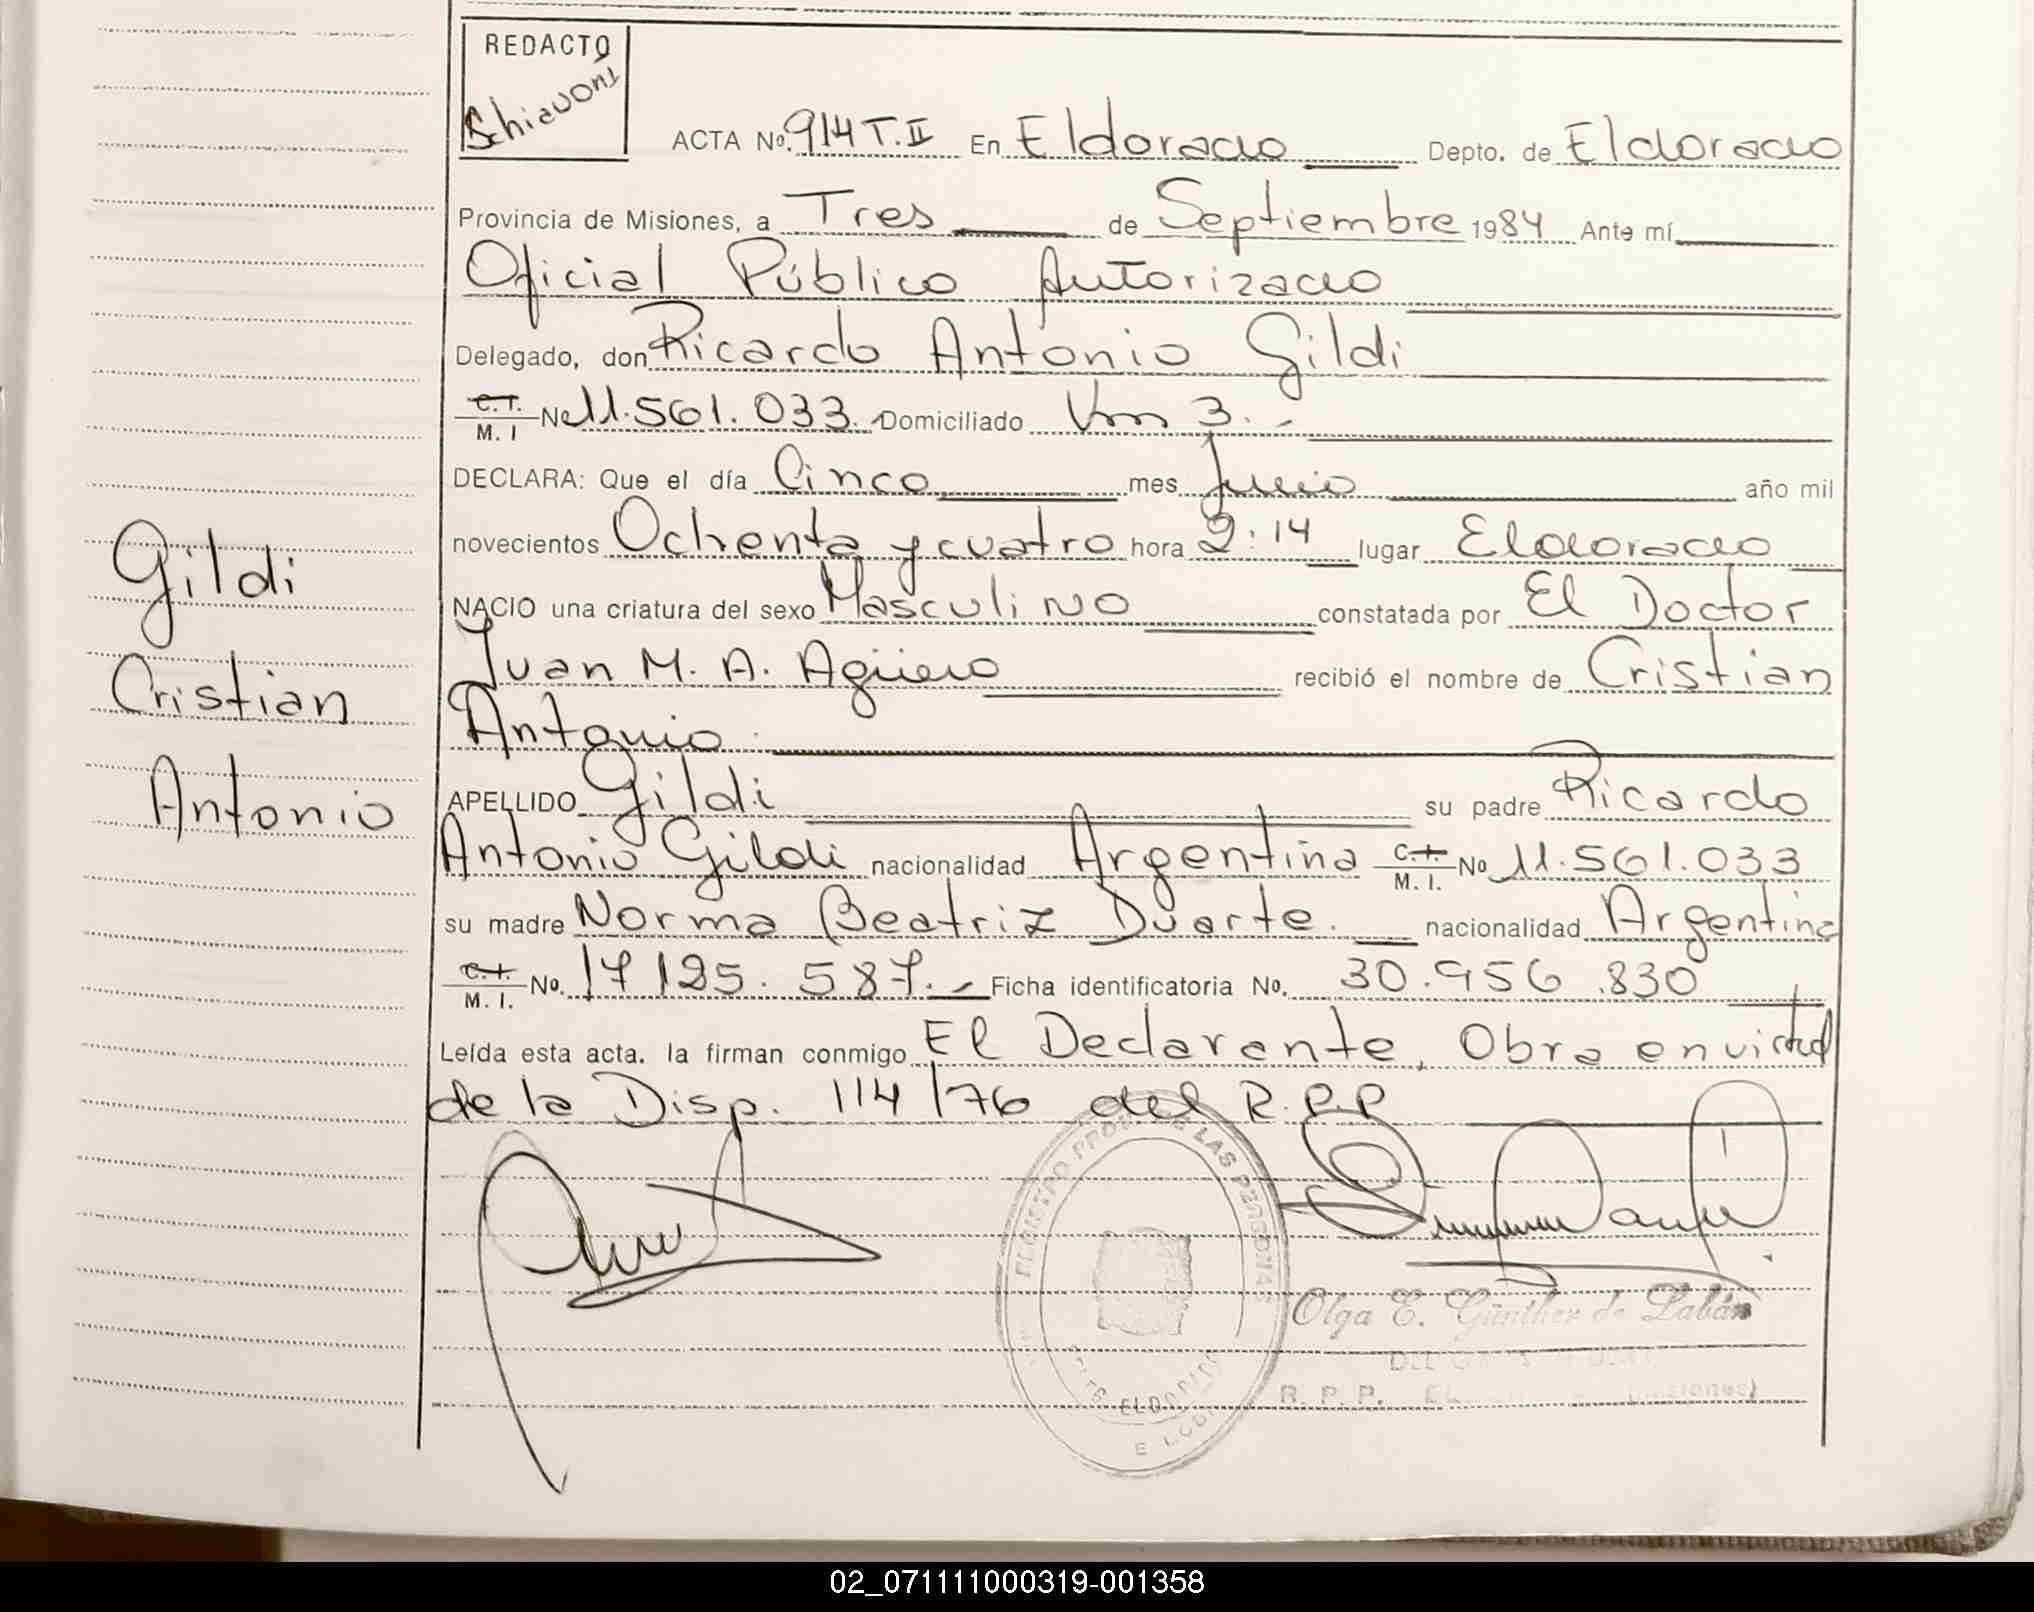 REDACTO
Schiavoni
ACTA No. 914 T. II En Eldorado Depto. de Eldorado
Provincia de Misiones, a Tres de Septiembre 1984 Ante mí
Oficial Público Autorizado
Delegado, don Ricardo Antonio Gildi
C.I. M. I No 11.561.033.- Domiciliado Km 3.-
DECLARA: Que el día Cinco mes Junio año mil
novecientos Ochenta y cuatro hora 2:14 lugar Eldorado
NACIO una criatura del sexo Masculino constatada por El Doctor
Juan M. A. Agüero recibió el nombre de Cristian
Antonio
APELLIDO Gildi su padre Ricardo
Antonio Gildi nacionalidad Argentina C.I. M. I. No 11.561.033
su madre Norma Beatriz Duarte. nacionalidad Argentina
C.I. M. I. No. 17 125. 587.- Ficha identificatoria No. 30.956.830
Leída esta acta. la firman conmigo El Declarante, Obra en virtud
de la Disp. 114/76 del R.P.P
Gildi
Cristian
Antonio
PROV. DE LAS PERSONAS
ELDORADO
Olga E. Günther de Labán
R. P. P.
02_071111000319-001358